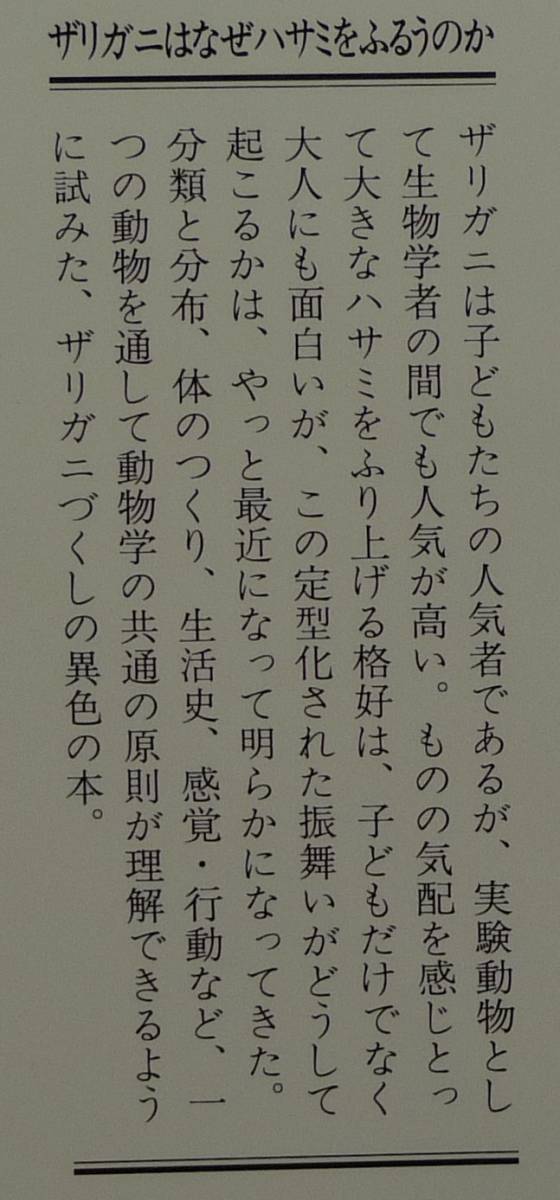 ザリガニはなぜハサミをふるうのか
ザリガニは子どもたちの人気者であるが、実験動物とし
て生物学者の間でも人気が高い。ものの気配を感じとっ
て大きなハサミをふり上げる格好は、子どもだけでなく
大人にも面白いが、この定型化された振舞いがどうして
起こるかは、やっと最近になって明らかになってきた。
分類と分布、体のつくり、生活史、感覚・行動など、一
つの動物を通して動物学の共通の原則が理解できるよう
に試みた、ザリガニづくしの異色の本。